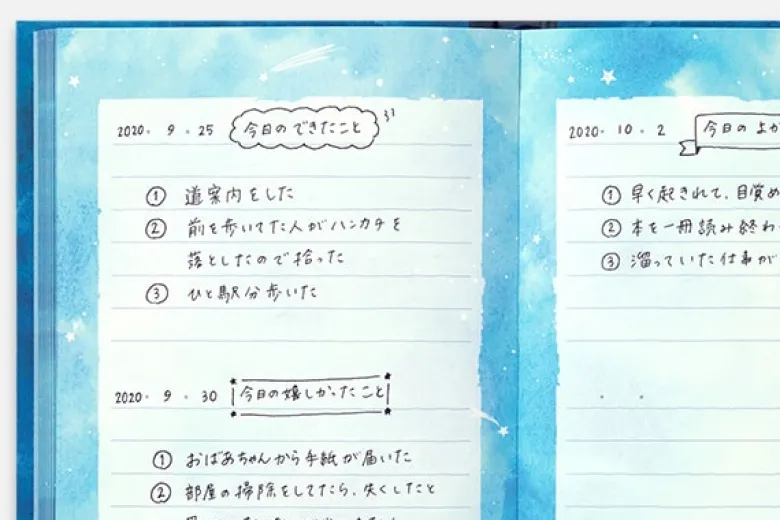 2020. 9. 25 今日のできたこと
① 道案内をした
② 前を歩いてた人がハンカチを
落としたので拾った
③ ひと駅分歩いた
2020. 9. 30 今日の嬉しかったこと
① おばあちゃんから手紙が届いた
② 部屋の掃除をしてたら、失くしたと
2020. 10. 2 今日のよか
① 早く起きれて、目覚め
② 本を一冊読み終わ
③ 溜っていた仕事が